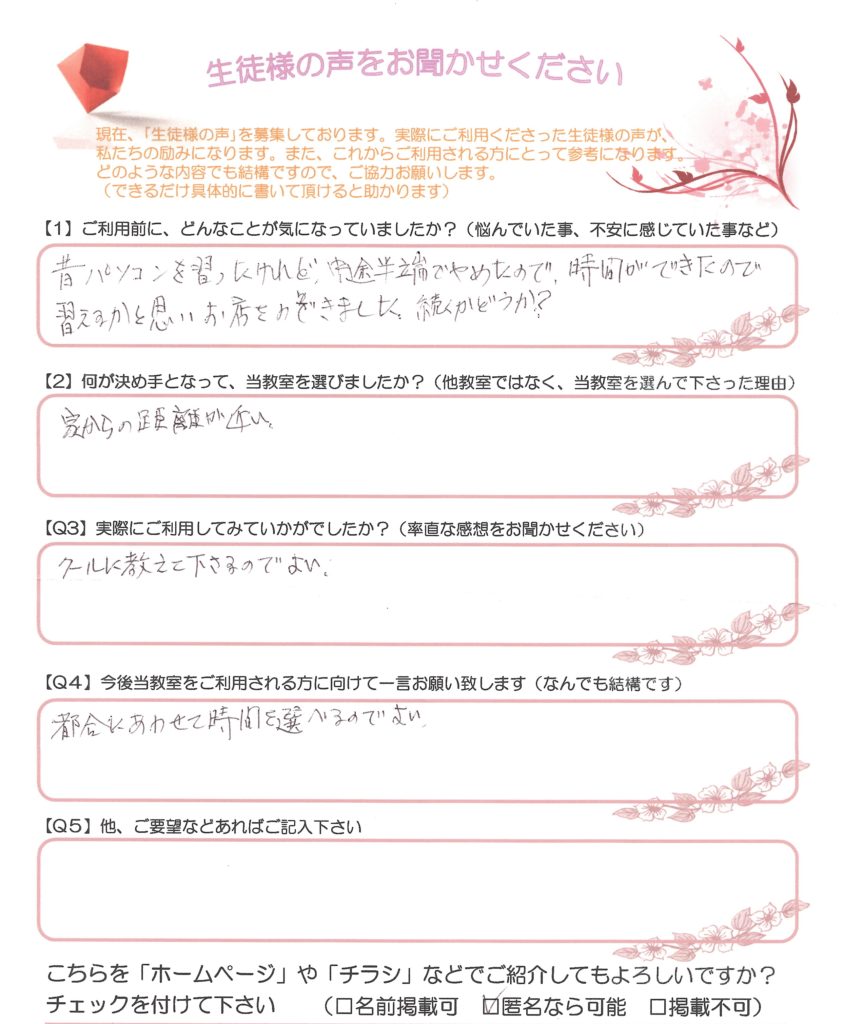 生徒様の声をお聞かせください
現在、「生徒様の声」を募集しております。実際にご利用くださった生徒様の声が、
私たちの励みになります。また、これからご利用される方にとって参考になります。
どのような内容でも結構ですので、ご協力お願いします。
（できるだけ具体的に書いて頂けると助かります）
【1】ご利用前に、どんなことが気になっていましたか？（悩んでいた事、不安に感じていた事など）
昔パソコンを習ったけれど、中途半端でやめたので、時間ができたので
習えるかと思いお店をのぞきました。続くかどうか？
【2】何が決め手となって、当教室を選びましたか？（他教室ではなく、当教室を選んで下さった理由）
家からの距離が近い。
【Q3】実際にご利用してみていかがでしたか？（率直な感想をお聞かせください）
クールに教えて下さるのでよい。
【Q4】今後当教室をご利用される方に向けて一言お願い致します（なんでも結構です）
都合にあわせて時間を選べるのでよい。
【Q5】他、ご要望などあればご記入下さい
こちらを「ホームページ」や「チラシ」などでご紹介してもよろしいですか？
チェックを付けて下さい　（□名前掲載可　☑匿名なら可能　□掲載不可）